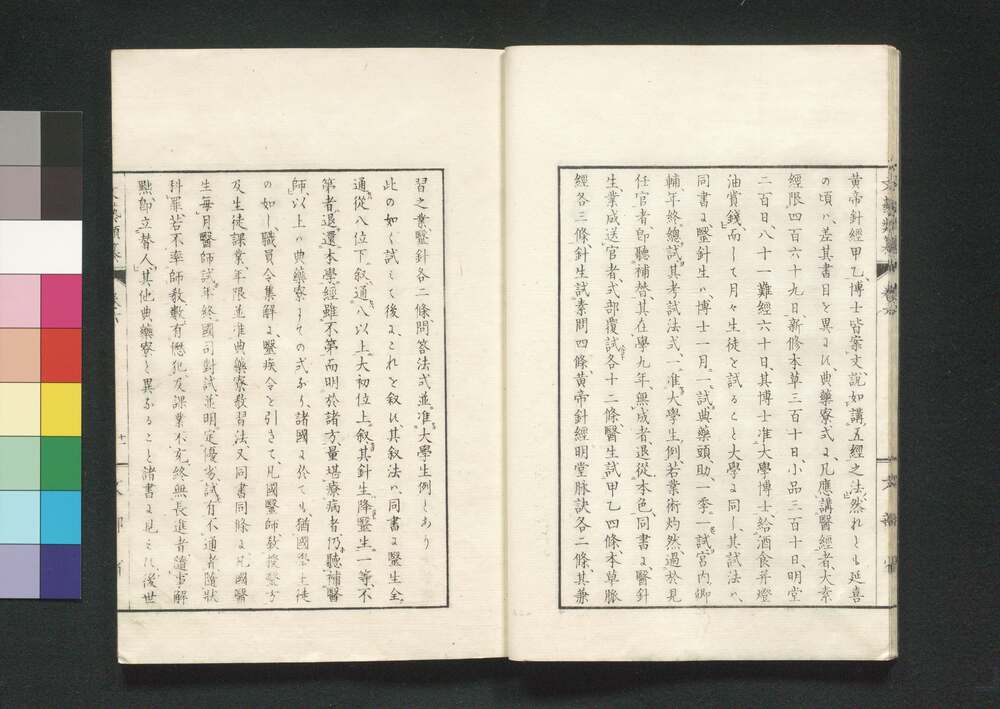 黄帝針經甲乙博士皆案文說如講五經之法、然れとも延喜
の頃ハ、差其書目を異にせり典藥寮式に、凡應講醫經者、大素
經限四百六十九日、新修本草三百十日、小品三百十日、明堂
二百日、八十一難經六十日、其博士准大學博士、給酒食幷燈
油賞錢、而して月々生徒を試ること大學に同し、其試法ハ、
同書に醫針生ハ、博士一月一試、典藥頭助、一季一試、宮内卿
輔、年終總試、其考試法式、一准大學生例、若業術灼然、過於見
任官者、即聽補替、其在學九年、無成者、退從本色、同書に、醫針
生業成送官者、式部覆試、各十二條、醫生試甲乙四條、本草脉
經各三條、針生試素問四條、黄帝針經明堂脉訣各二條、其兼
習之業、醫針各二條、問答法式、並准大學生例とあり
此の如く試みて後に、これを叙せり其叙法ハ、同書に醫生全
通、從八位下叙、通八以上、大初位上叙、其針生降醫生一等、不
第者、退還本學、經雖不第、而明於諸方、量堪療病者、仍聽補醫
師、以上ハ典藥寮にての式なり、諸國に於ても、猶國學生徒
の如し、職員令集解に、醫疾令を引きて、凡國醫師、教授醫方
及生徒課業年限、並准典藥寮教習法、又同書同條に凡國醫
生、毎月醫師試、年終國司對試、並明定優劣、試有不通者、隨狀
科罪、若不率師教、數有愆犯、及課業不充、終無長進者、隨事解
黜、即立替人、其他典藥寮と異なること諸書に見えす、後世
廿一
文部省